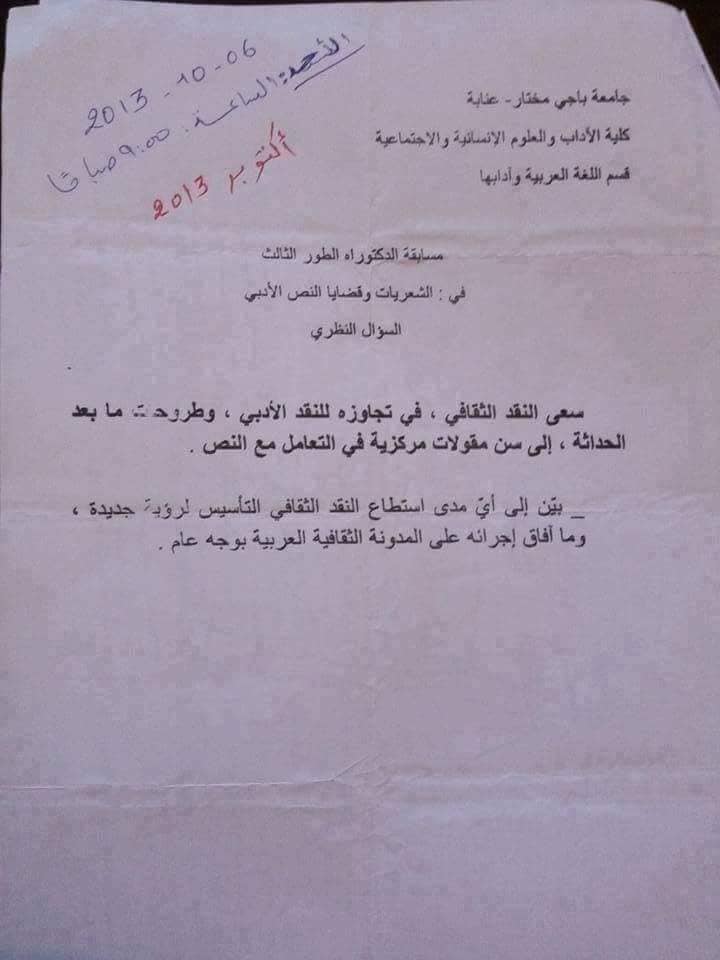 2013 - 10 - 06
الأحد: الساعة: 9:00 صباحًا
أكتوبر 2013
جامعة باجي مختار- عنابة
كلية الآداب والعلوم الإنسانية والاجتماعية
قسم اللغة العربية وأدابها
مسابقة الدكتوراه الطور الثالث
في : الشعريات وقضايا النص الأدبي
السؤال النظري
سعى النقد الثقافي ، في تجاوزه للنقد الأدبي ، وطروحت ما بعد
الحداثة ، إلى سن مقولات مركزية في التعامل مع النص .
_ بيّن إلى أيّ مدى استطاع النقد الثقافي التأسيس لرؤية جديدة ،
وما آفاق إجرائه على المدونة الثقافية العربية بوجه عام .